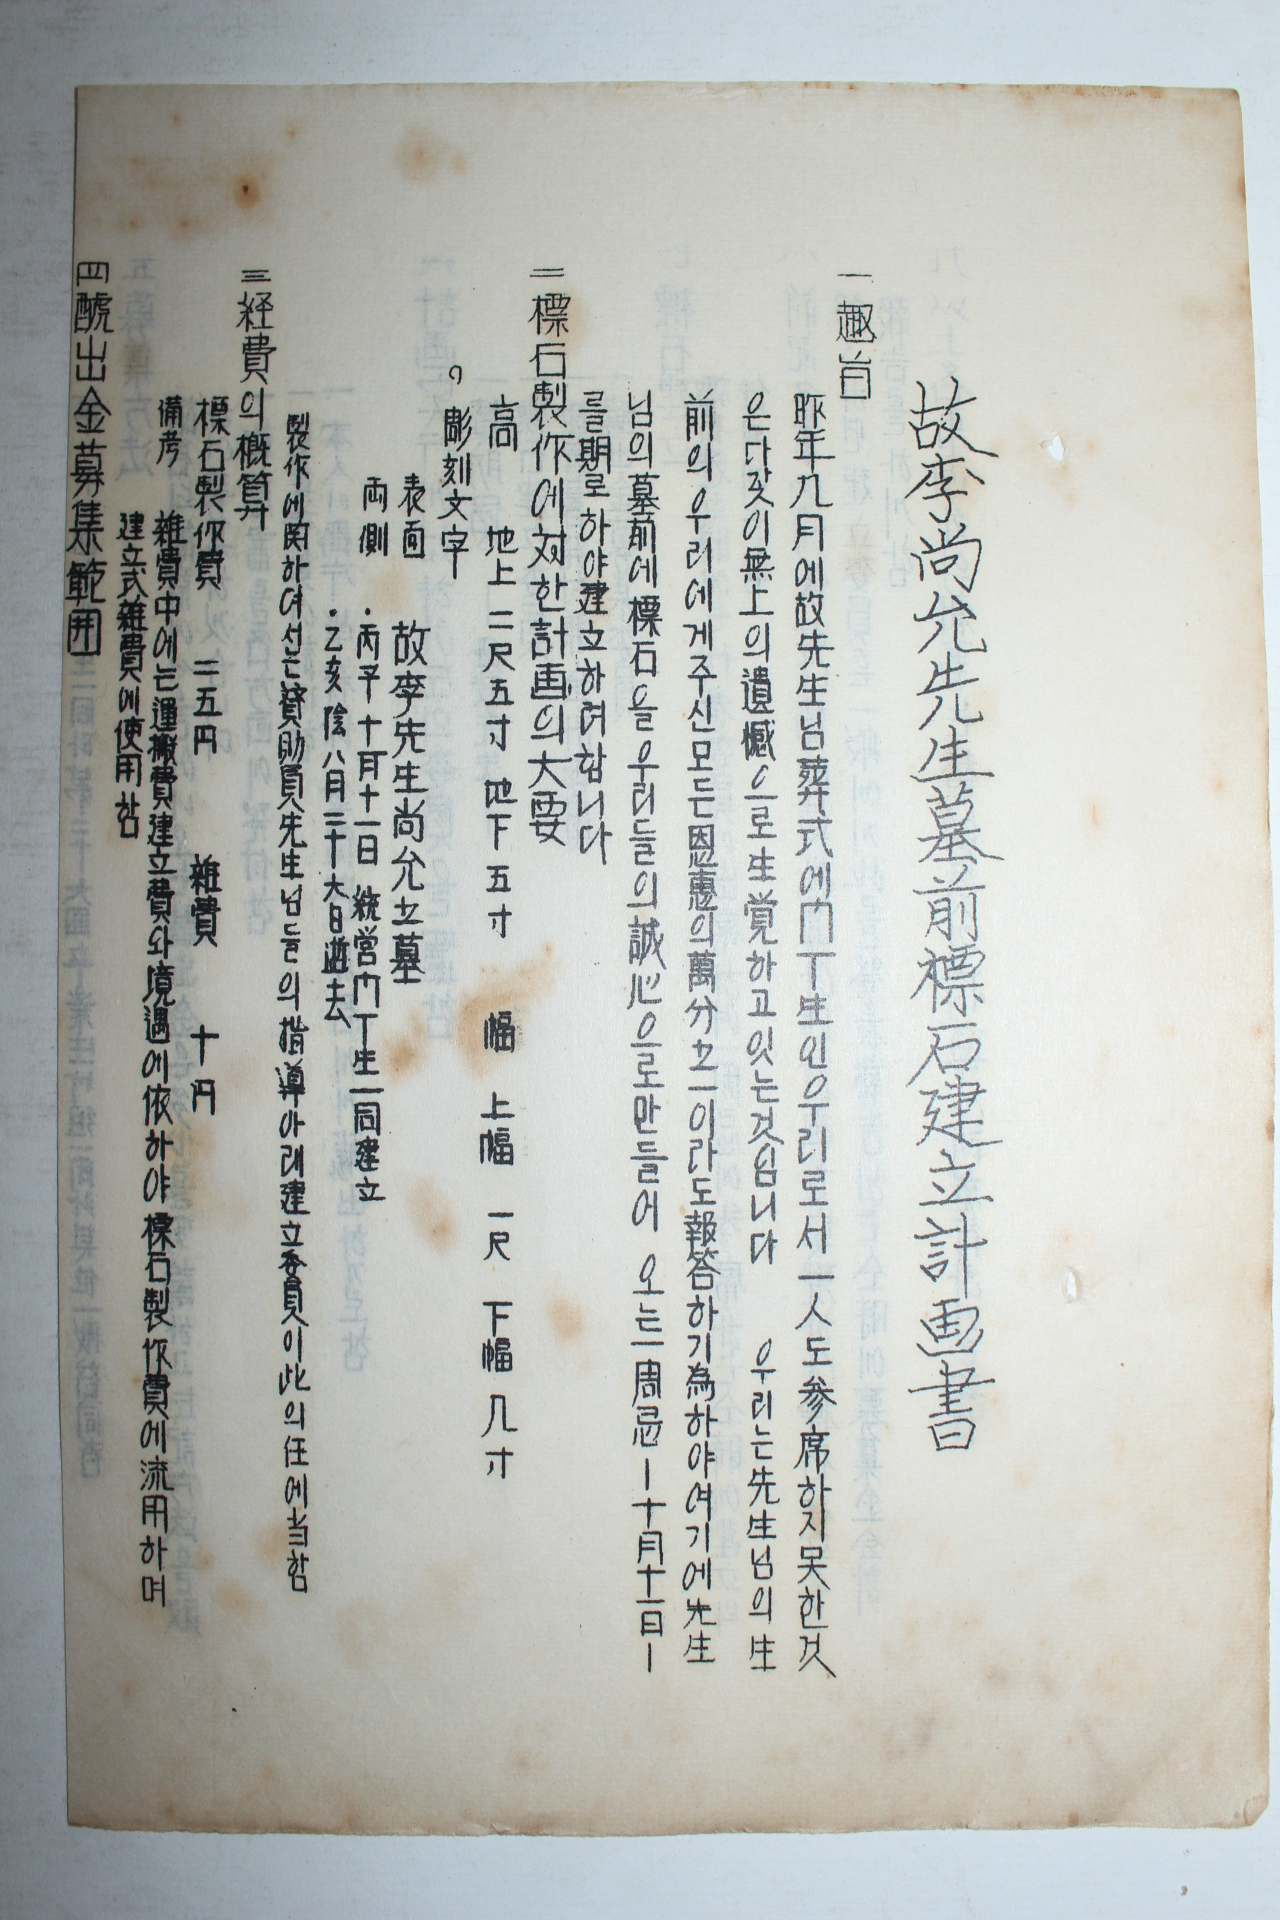 故李尚允先生墓前標石建立計画書
一 趣旨
昨年九月에故先生님葬式에門下生인우리로서一人도参席하지못한것
은다갓이無上의遺憾으로生覚하고잇는것임니다 우리는先生님의生
前의우리에게주신모든恩惠의萬分之一이라도報答하기為하야여기에先生
님의墓前에標石을우리들의誠心으로만들어 오는一周忌ー十月十一日ー
를期로하야建立하려합니다
二 標石製作에対한計画의大要
高 地上 二尺五寸 地下 五寸 幅 上幅 一尺 下幅 八寸
彫刻文字
表面 故李先生尚允之墓
両側 ・丙子十月十一日 統営門下生一同建立
・乙亥陰八月二十六日逝去
製作에関하여선는賛助員先生님들의指導아래建立委員이此의任에当함
三 経費의概算
標石製作費 二五円 雑費 十円
備考 雑費中에는運搬費建立費와境遇에依하야標石製作費에流用하며
建立式雑費에使用함
四 醵出金募集範囲